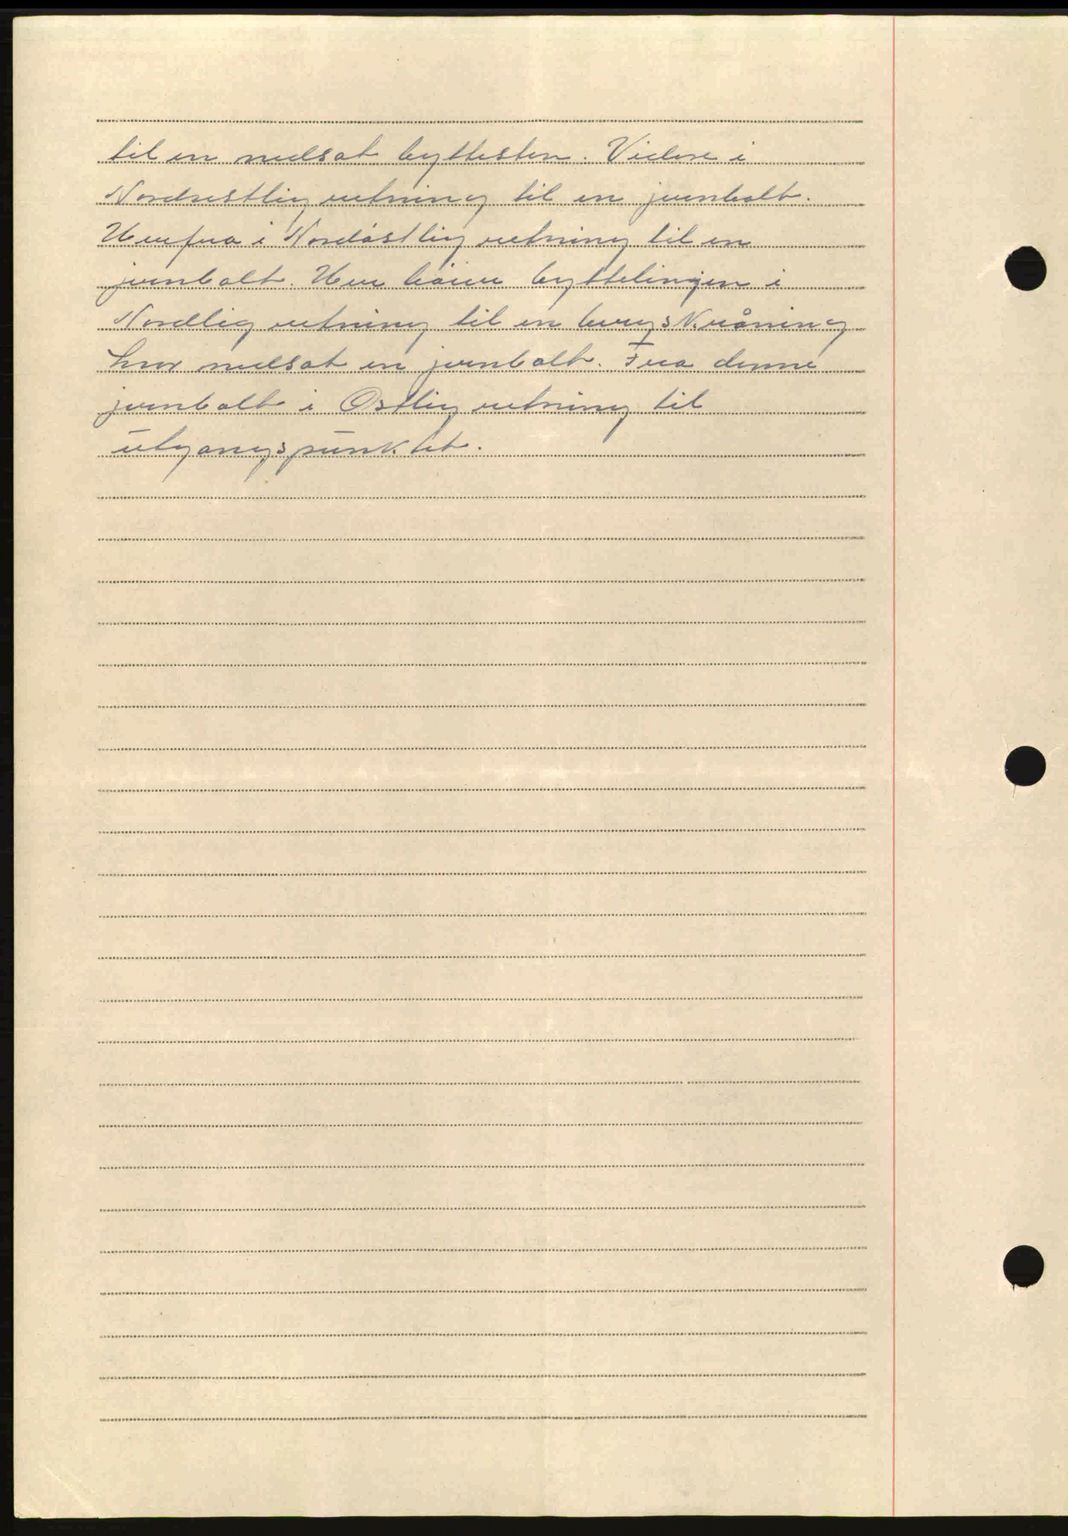 til en nedsat byttesten. Videre i
Nordvestlig retning til en jernbolt.
Herfra i Nordöstlig retning til en
jernbolt. Her går byttelinjen i
Nordlig retning til en bergs
hvor nedsat en jernbolt. Fra denne
jernbolt i Ostlig retning til
utgangspunktet.